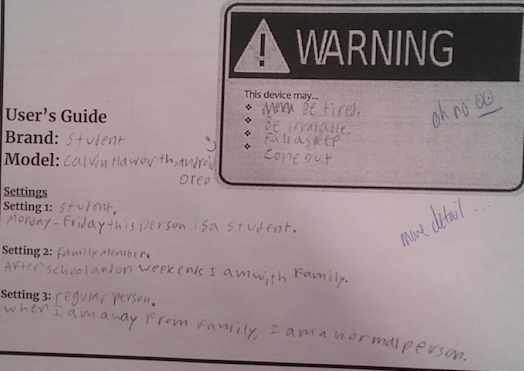 WARNING
This device may...
Be tired.
Be irratable.
Fall asleep
zone out
oh no
User's Guide
Brand: student
Model: Calvin Haworth, Android
Oreo
more detail...
Settings
Setting 1: student.
Monday-Friday this person is a student.
Setting 2: family member.
After school and on weekends I am with family.
Setting 3: regular person.
when I am away from family, I am a normal person.